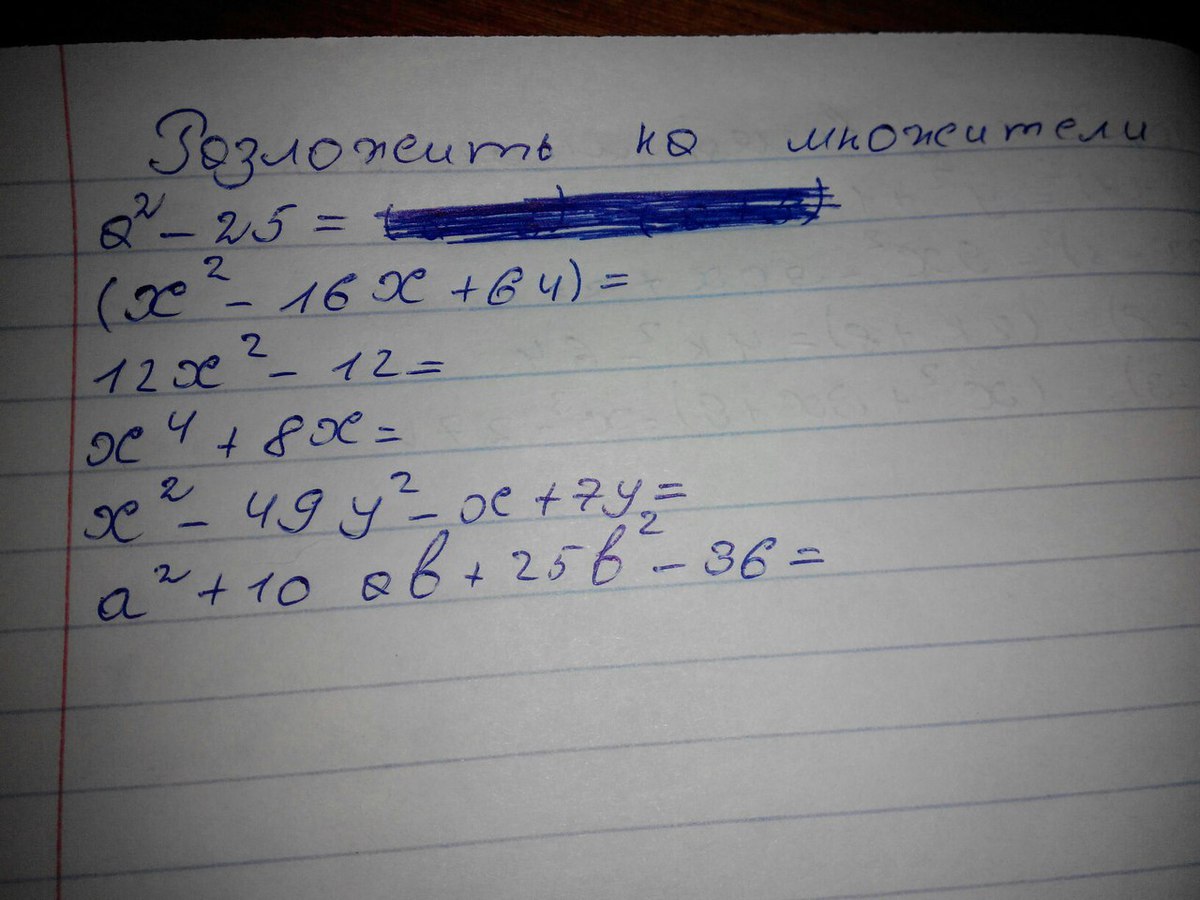 Розложить на множители
a² - 25 =
(x² - 16x + 64) =
12x² - 12 =
x⁴ + 8x =
x² - 49y² - x + 7y =
a² + 10 ab + 25b² - 36 =